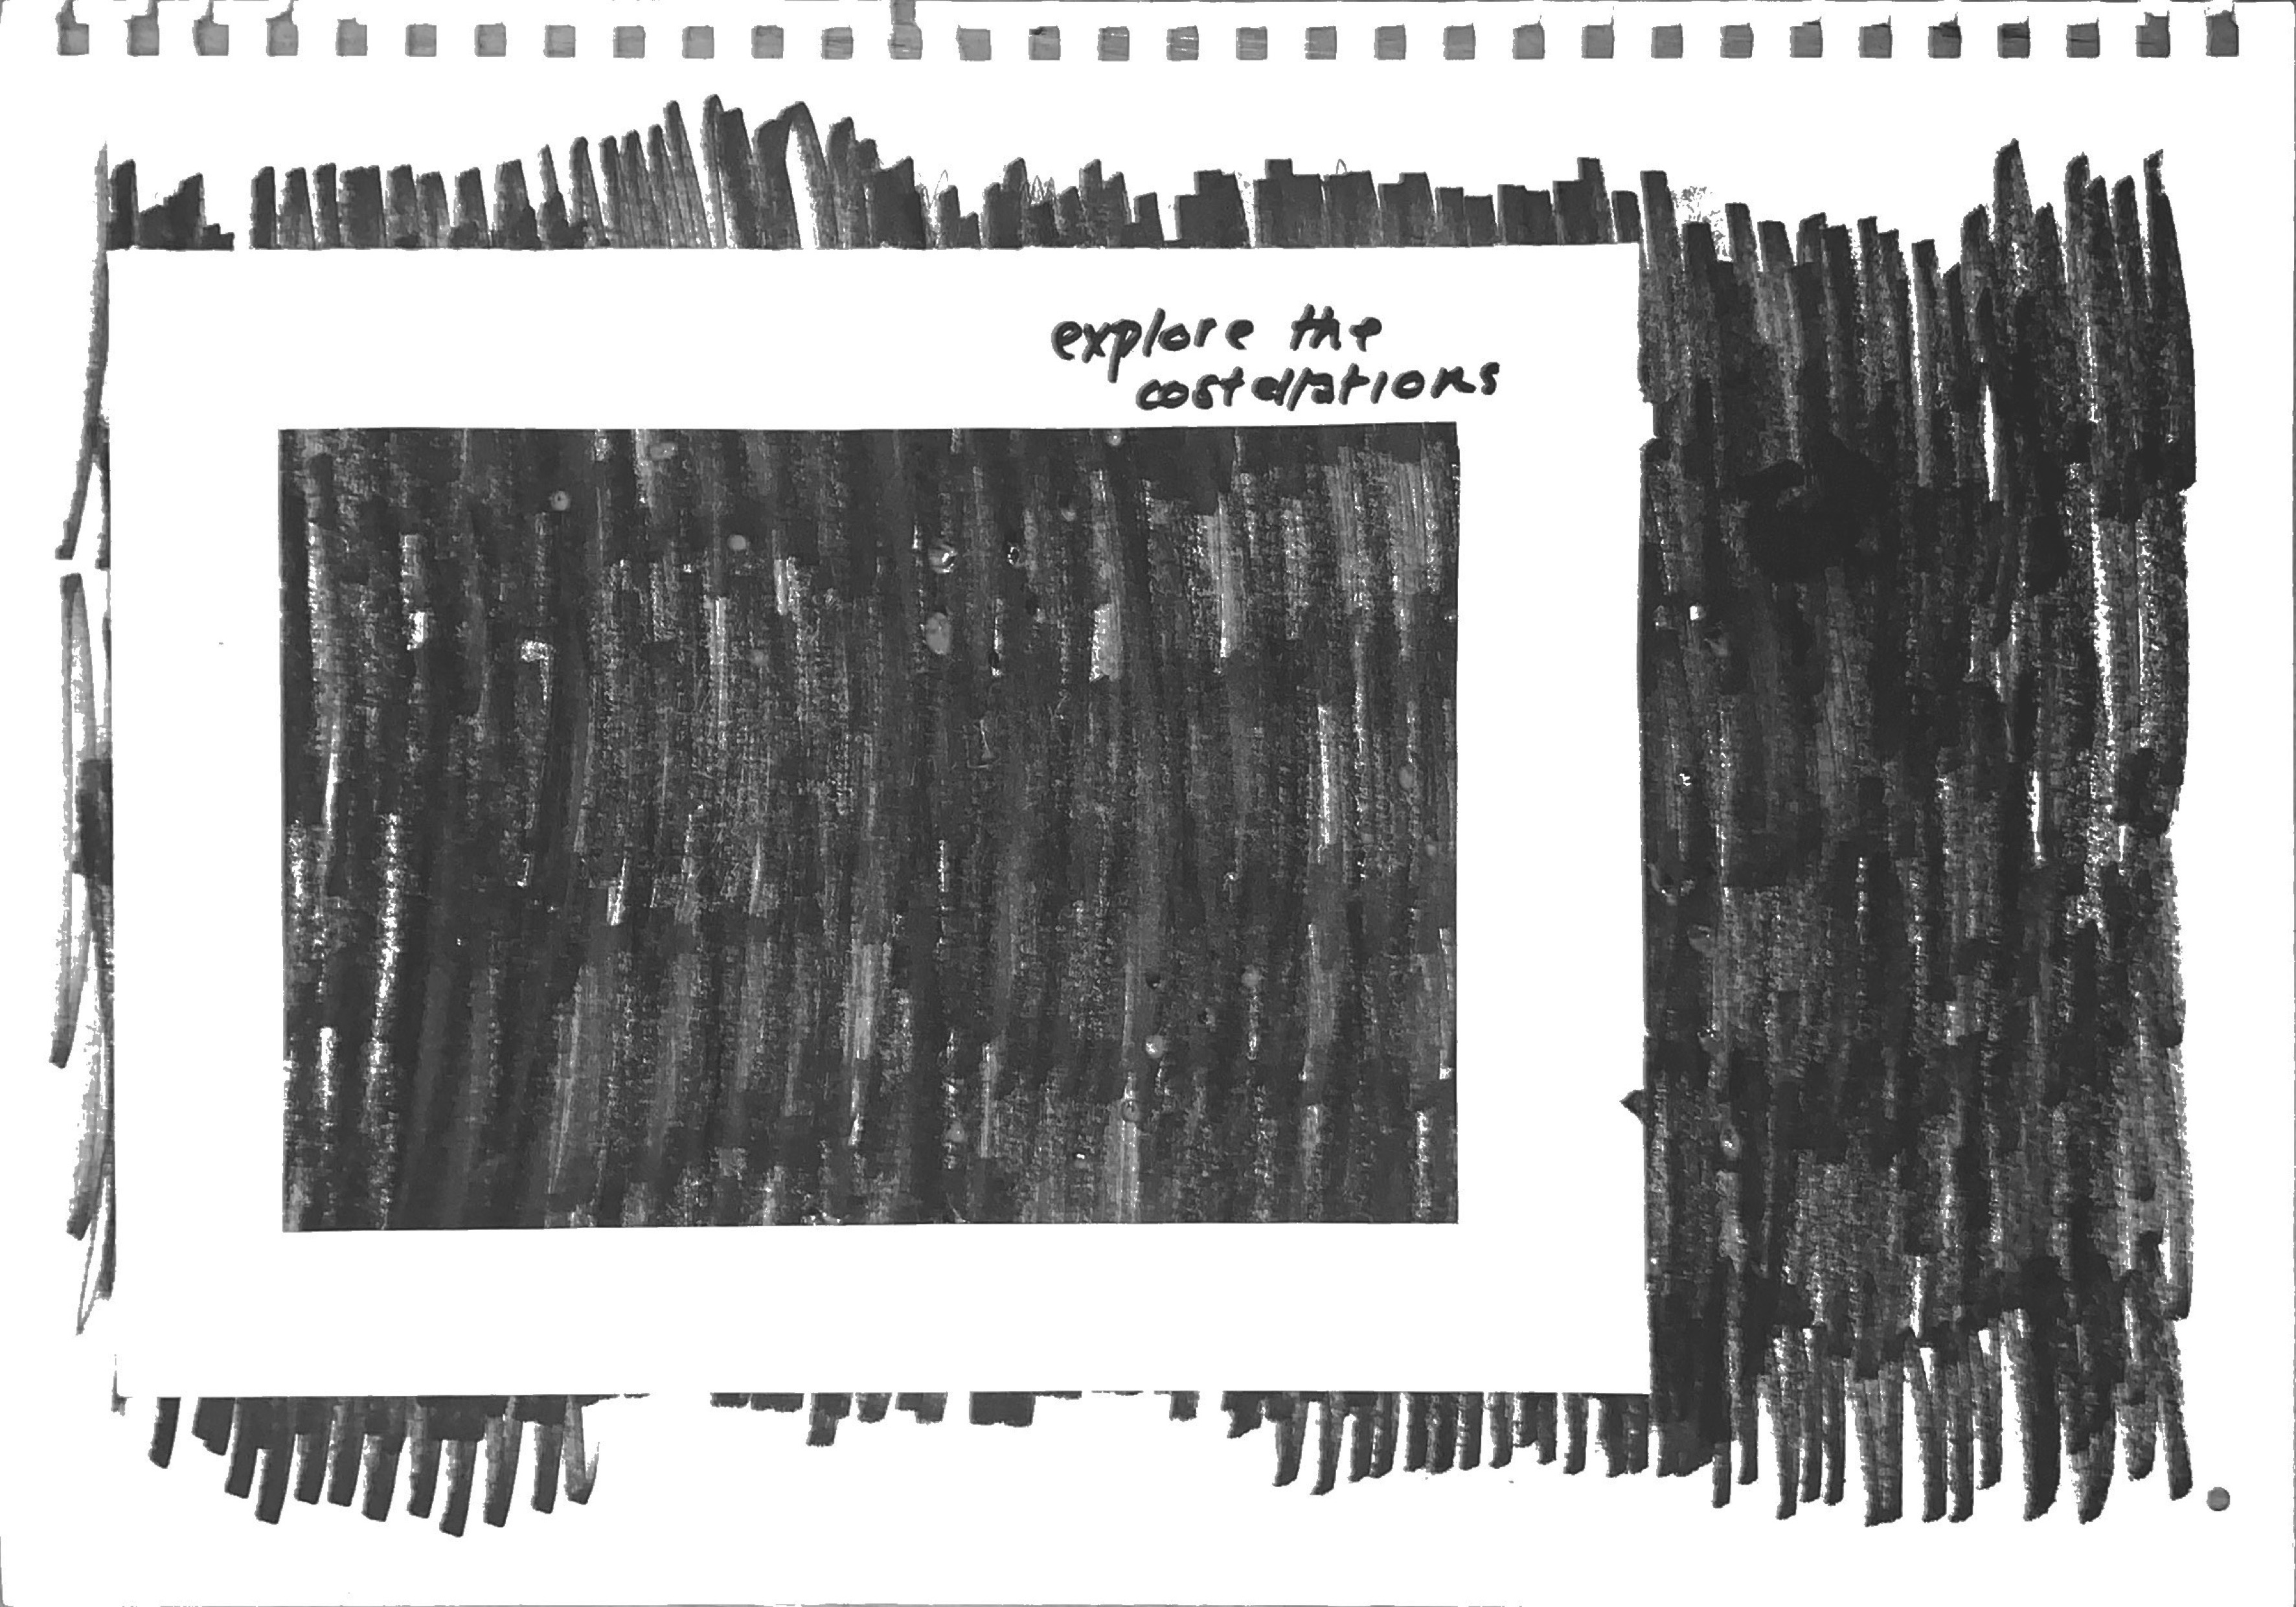 explore the
costellations